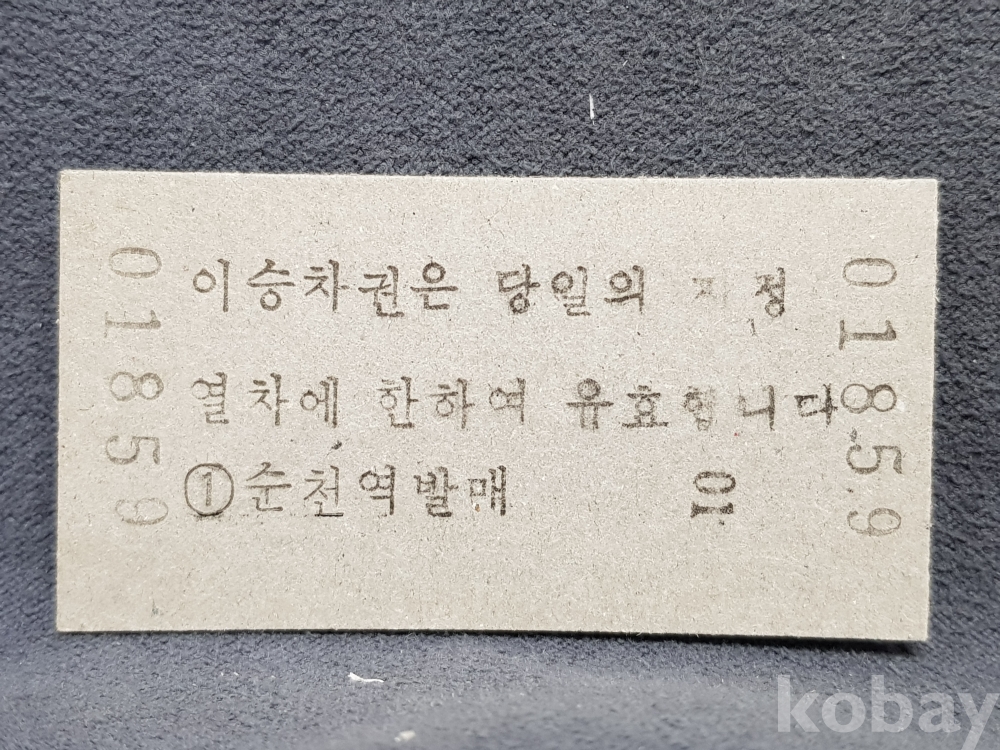 이승차권은 당일의 지정
열차에 한하여 유효합니다
①순천역발매
01
01859
01859
kobay